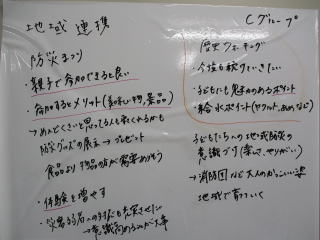 地域連携
Cグループ
防災まつり
・親子で参加できると良い
・参加するとメリット(美味しい物、景品)
→めんどくさいと思ってる人も来てくれるかも
防災グッズの展示→プレゼント
食品より物品の方が需要ありそう
・体験を増やす
・災害弱者への対応も充実させたい
→意識高めることが大事
歴史ウォーキング
・今後も続けていきたい
・子どもにも魅力のあるポイント
・給水ポイント(ヤクルト、あめなど)
子どもたちへの地域防災の
意識づくり(楽しさ、やりがい)
→消防団など大人のかっこいい姿
地域で育っていく